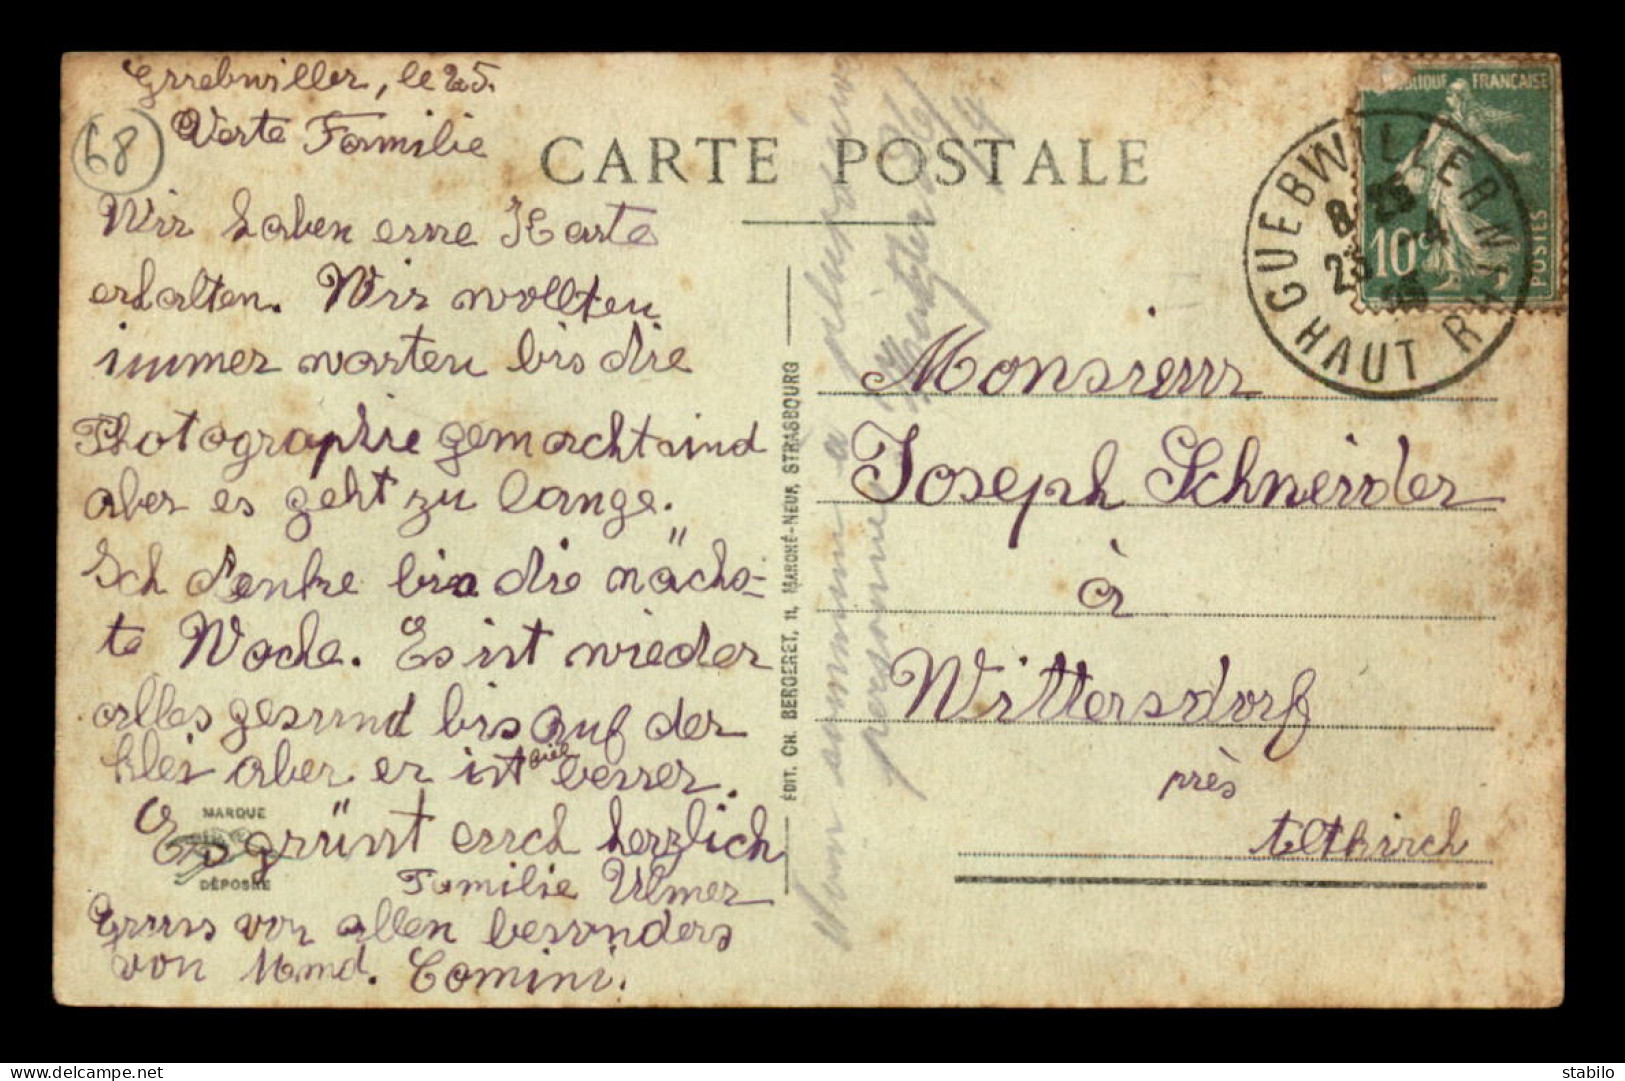 Guebwiller, le 25.
Werte Familie
Wir haben eure Karte
erhalten. Wir wollten
immer warten bis die
Photographie gemacht sind
aber es geht zu lange.
Ich denke bis die näch-
te Woche. Es ist wieder
alles gesund bis auf der
klei aber er ist viel besser.
Es grüsst euch herzlich
Familie Ulmer
Gruss von allen besonders
von Mmd. Comini.
68
MARQUE
DÉPOSÉE
CARTE POSTALE
ÉDIT. CH. BERGERET, 11, MARCHÉ-NEUF, STRASBOURG
Monsieur
Joseph Schneider
à
Wittersdorf
près
Altkirch
RÉPUBLIQUE FRANÇAISE
10c
POSTES
GUEBWILLER
HAUT RHIN
8 25
25 -4